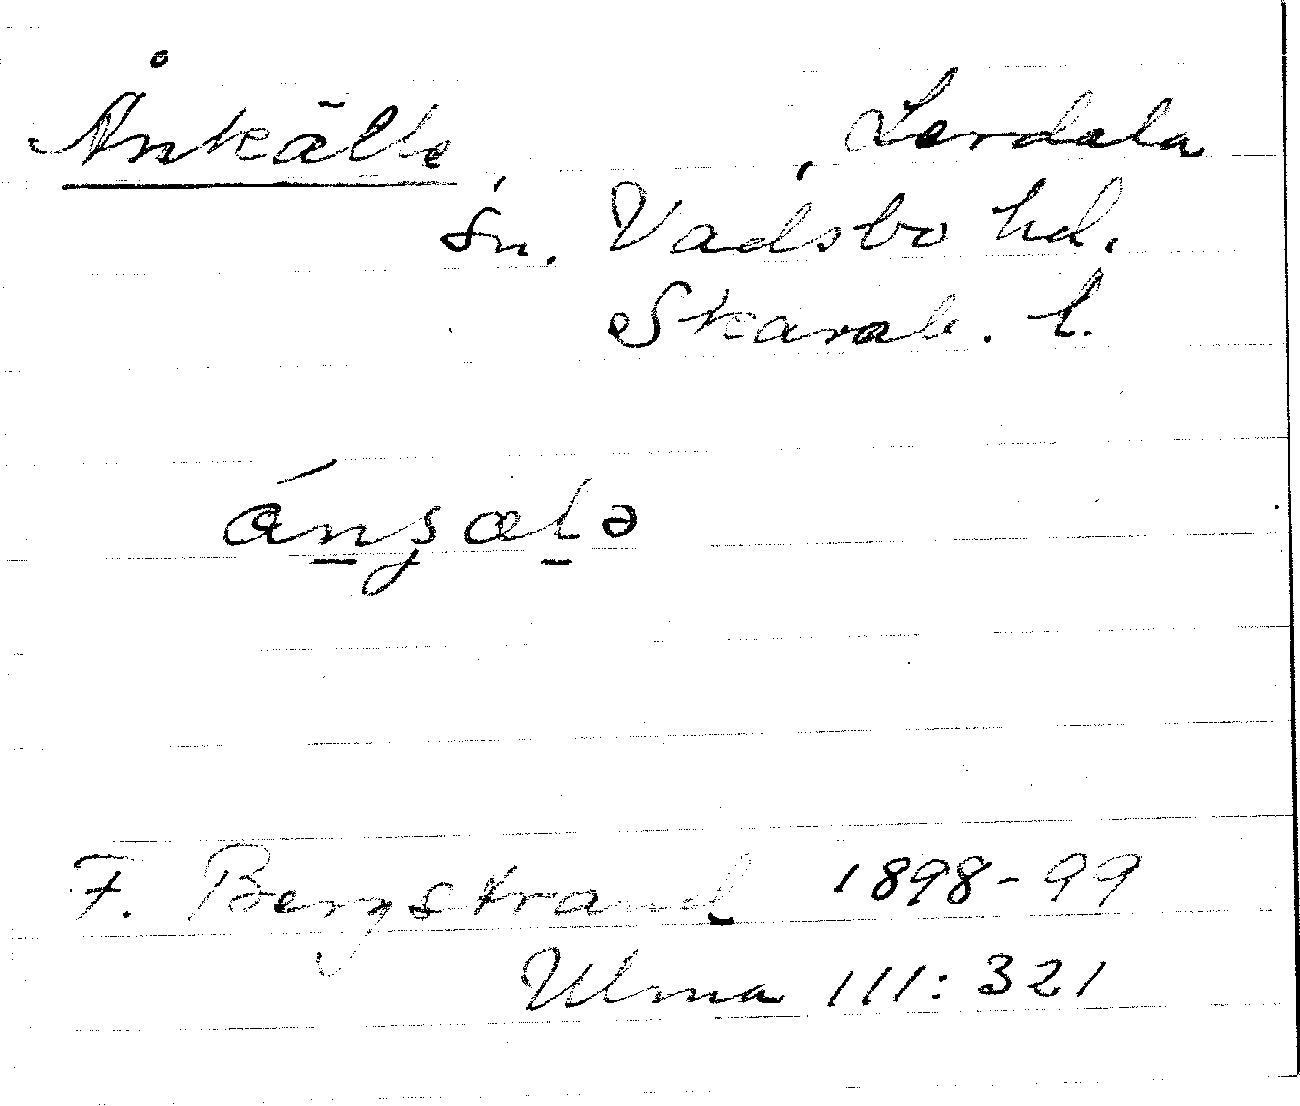 Ånkälle, Lerdala
sn. Vadsbo hd.
Skarab. l.
F. Bergstrand 1898-99
Ulma 111:321